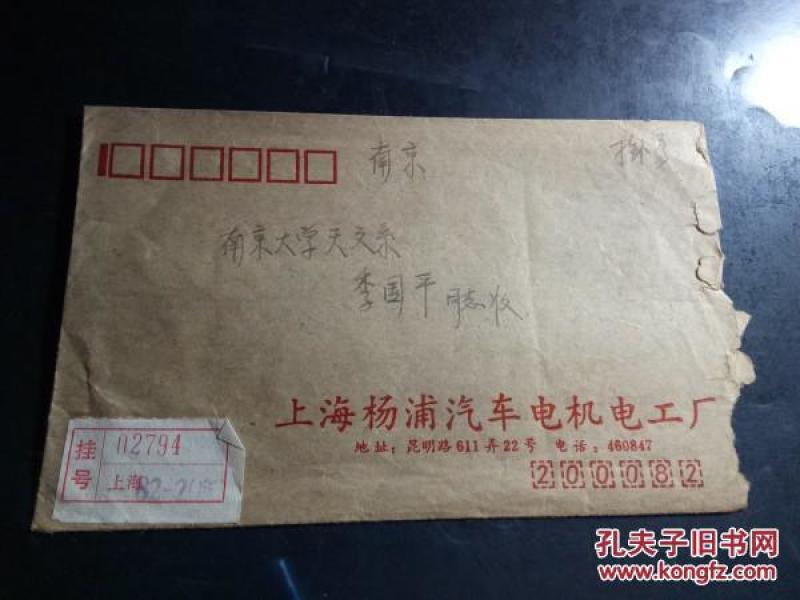 南京
挂号
南京大学天文系
李国平同志收
上海杨浦汽车电机电工厂
地址：昆明路611弄22号 电话：460847
200082
挂号
02794
上海
孔夫子旧书网
www.kongfz.com